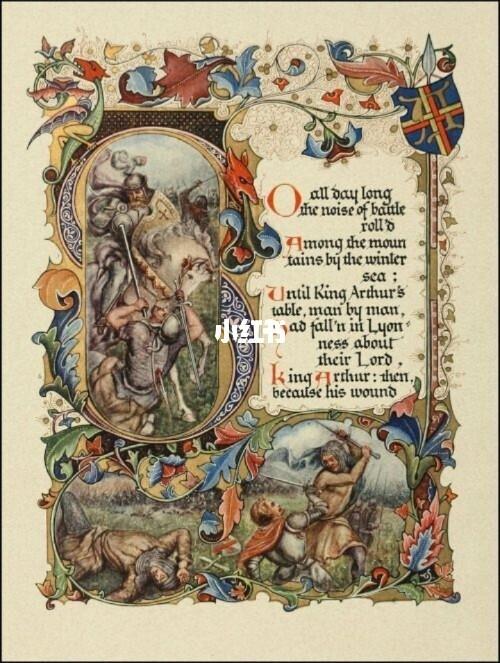 SO all day long
the noise of battle
roll'd
Among the moun
tains by the winter
sea :
Until King Arthur's
table, man by man,
Had fall'n in Lyon=
ness about
their Lord,
King Arthur: then
because his wound
小红书